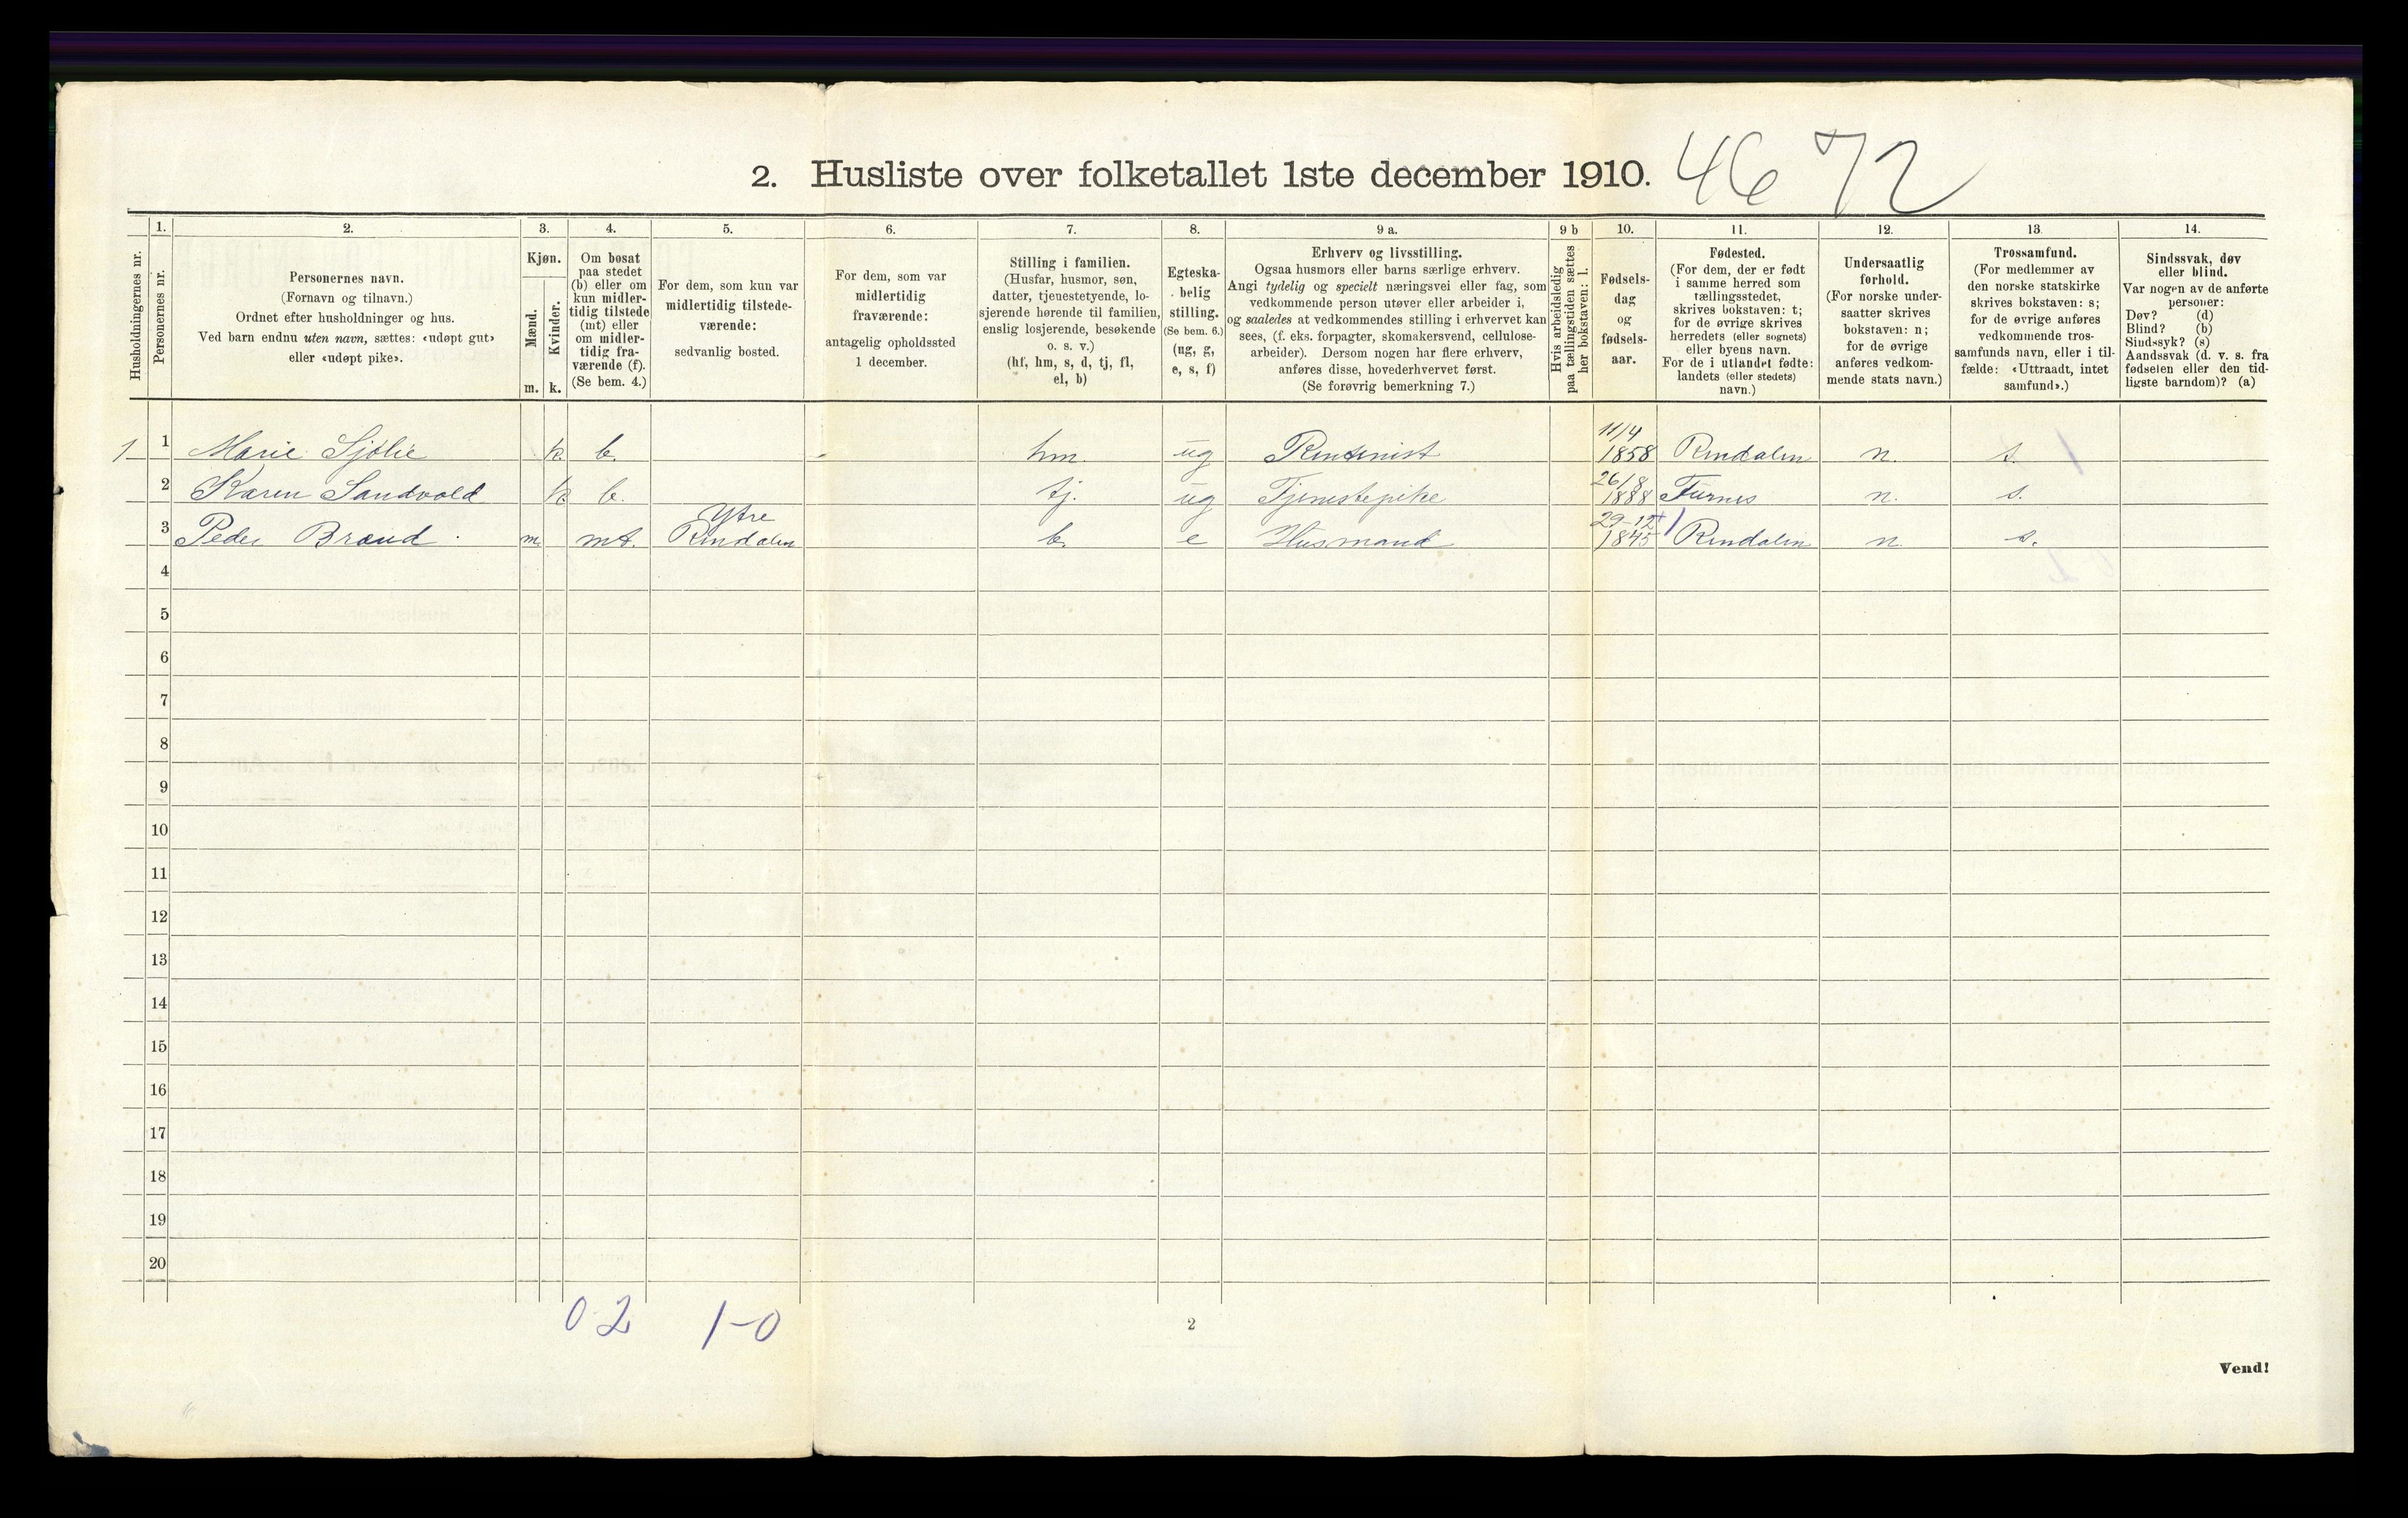 2. Husliste over folketallet 1ste december 1910. 46 72
Husholdningernes nr.
1.
Personernes nr.
2.
Personernes navn.
(Fornavn og tilnavn.)
Ordnet efter husholdninger og hus.
Ved barn endnu uten navn, sættes: «udøpt gut»
eller «udøpt pike».
3.
Kjøn.
Mænd.
m.
Kvinder.
k.
4.
Om bosat
paa stedet
(b) eller om
kun midler-
tidig tilstede
(mt) eller
om midler-
tidig fra-
værende (f).
(Se bem. 4.)
5.
For dem, som kun var
midlertidig tilstede-
værende:
sedvanlig bosted.
6.
For dem, som var
midlertidig
fraværende:
antagelig opholdssted
1 december.
7.
Stilling i familien.
(Husfar, husmor, søn,
datter, tjenestetyende, lo-
sjerende hørende til familien,
enslig losjerende, besøkende
o. s. v.)
(hf, hm, s, d, tj, fl,
el, b)
8.
Egteska-
belig
stilling.
(Se bem. 6.)
(ug, g,
e, s, f)
9 a.
Erhverv og livsstilling.
Ogsaa husmors eller barns særlige erhverv.
Angi tydelig og specielt næringsvei eller fag, som
vedkommende person utøver eller arbeider i,
og saaledes at vedkommendes stilling i erhvervet kan
sees, (f. eks. forpagter, skomakersvend, cellulose-
arbeider). Dersom nogen har flere erhverv,
anføres disse, hovederhvervet først.
(Se forøvrig bemerkning 7.)
9 b
Hvis arbeidsledig
paa tællingstiden sættes
her bokstaven: l.
10.
Fødsels-
dag
og
fødsels-
aar.
11.
Fødested.
(For dem, der er født
i samme herred som
tællingsstedet,
skrives bokstaven: t;
for de øvrige skrives
herredets (eller sognets)
eller byens navn.
For de i utlandet fødte:
landets (eller stedets)
navn.)
12.
Undersaatlig
forhold.
(For norske under-
saatter skrives
bokstaven: n;
for de øvrige
anføres vedkom-
mende stats navn.)
13.
Trossamfund.
(For medlemmer av
den norske statskirke
skrives bokstaven: s;
for de øvrige anføres
vedkommende tros-
samfunds navn, eller i til-
fælde: «Uttraadt, intet
samfund».)
14.
Sindssvak, døv
eller blind.
Var nogen av de anførte
personer:
Døv? (d)
Blind? (b)
Sindssyk? (s)
Aandssvak (d. v. s. fra
fødselen eller den tid-
ligste barndom)? (a)
1 1 Marie Sjølie k. b. hm. ug Rentenist 11/4 1858 Rindalen n. s.
2 Karen Sandvold k b. tj. ug Tjenestepike 26/8 1888 Furnes n. s.
3 Peder Brænd m mt. Ytre Rindalen b. e Husmand 29-12 1845 Rindalen n. s.
4
5
6
7
8
9
10
11
12
13
14
15
16
17
18
19
20
0 2 1-0
2
Vend!